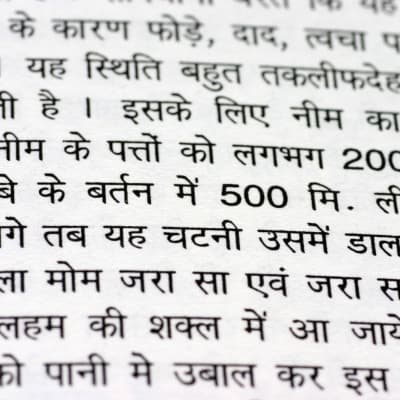 के कारण फोड़े, दाद, त्वचा
। यह स्थिति बहुत तकलीफदेह
है । इसके लिए नीम का
नीम के पत्तों को लगभग 200
के बर्तन में 500 मि. ली
तब यह चटनी उसमें डाल
मोम जरा सा एवं जरा स
की शक्ल में आ जाये
को पानी मे उबाल कर इस